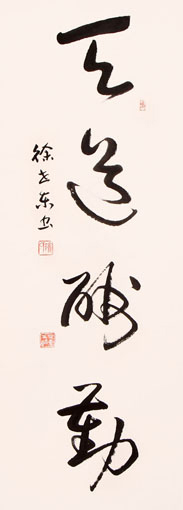 天道酬勤
徐世东书